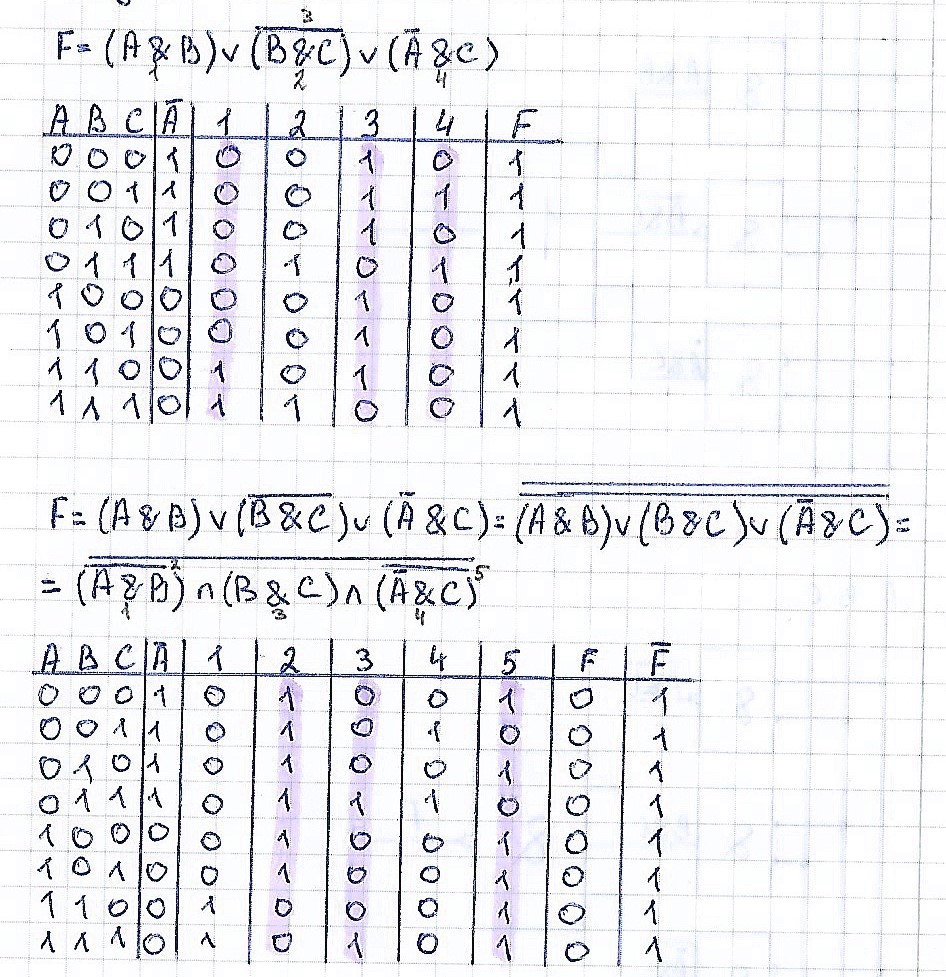 3
F = (A & B) ∨ (B̅ ̅&̅ ̅C̅) ∨ (A̅ & C)
1 2 4
A B C A̅ 1 2 3 4 F
0 0 0 1 0 0 1 0 1
0 0 1 1 0 0 1 1 1
0 1 0 1 0 0 1 0 1
0 1 1 1 0 1 0 1 1
1 0 0 0 0 0 1 0 1
1 0 1 0 0 0 1 0 1
1 1 0 0 1 0 1 0 1
1 1 1 0 1 1 0 0 1
F = (A & B) ∨ (B̅ ̅&̅ ̅C̅) ∨ (A̅ & C) = (A & B) ∨ (B & C) ∨ (A̅ & C) =
= (A̅ ̅&̅ ̅B̅)² ∩ (B & C) ∩ (A̅ & C)⁵
1 3 4
A B C A̅ 1 2 3 4 5 F F̅
0 0 0 1 0 1 0 0 1 0 1
0 0 1 1 0 1 0 1 0 0 1
0 1 0 1 0 1 0 0 1 0 1
0 1 1 1 0 1 1 1 0 0 1
1 0 0 0 0 1 0 0 1 0 1
1 0 1 0 0 1 0 0 1 0 1
1 1 0 0 1 0 0 0 1 0 1
1 1 1 0 1 0 1 0 1 0 1